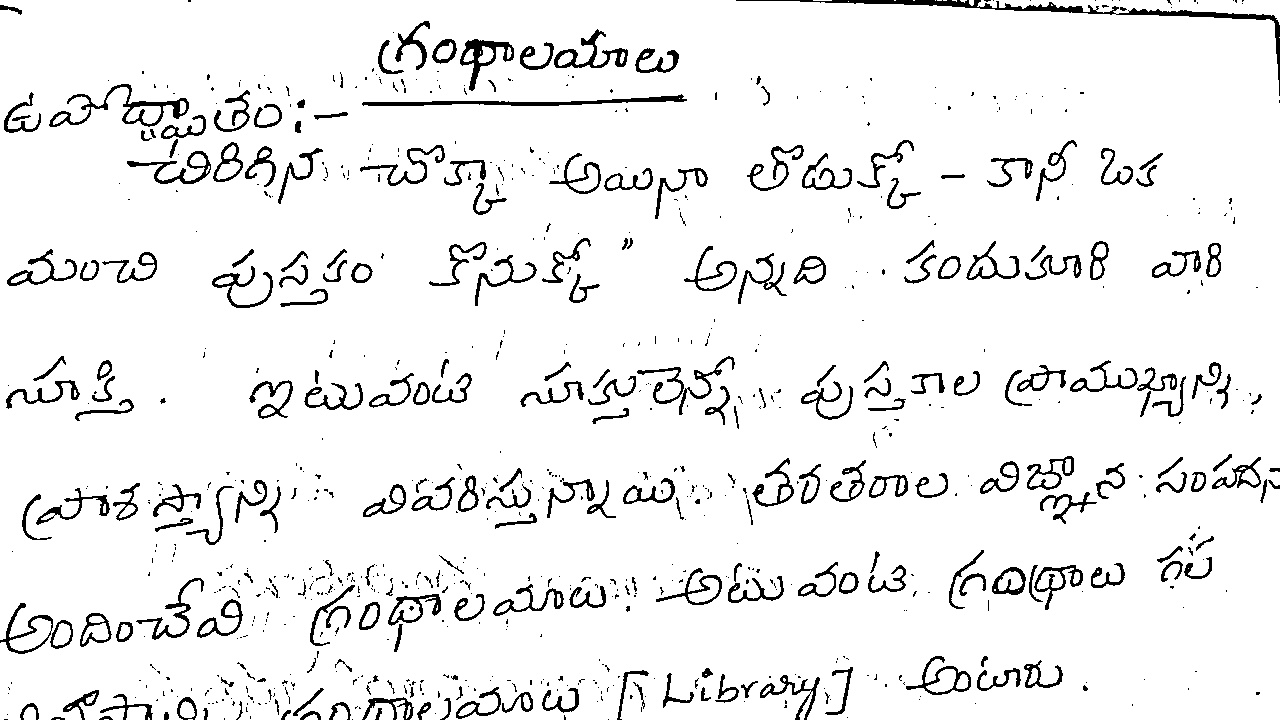 గ్రంథాలయాలు
ఉపోద్ఘాతం:-
చిరిగిన చొక్కా అయినా తొడుక్కో - కానీ ఒక
మంచి పుస్తకం కొనుక్కో" అన్నది కందుకూరి వారి
సూక్తి. ఇటువంటి సూక్తులెన్నో పుస్తకాల ప్రాముఖ్యాన్ని,
ప్రాశస్త్యాన్ని వివరిస్తున్నాయి. తరతరాల విజ్ఞాన సంపదను
అందించేవి గ్రంథాలయాలు. అటువంటి గ్రంథాలు గల
గ్రంథాలయాలు [Library] అంటారు.